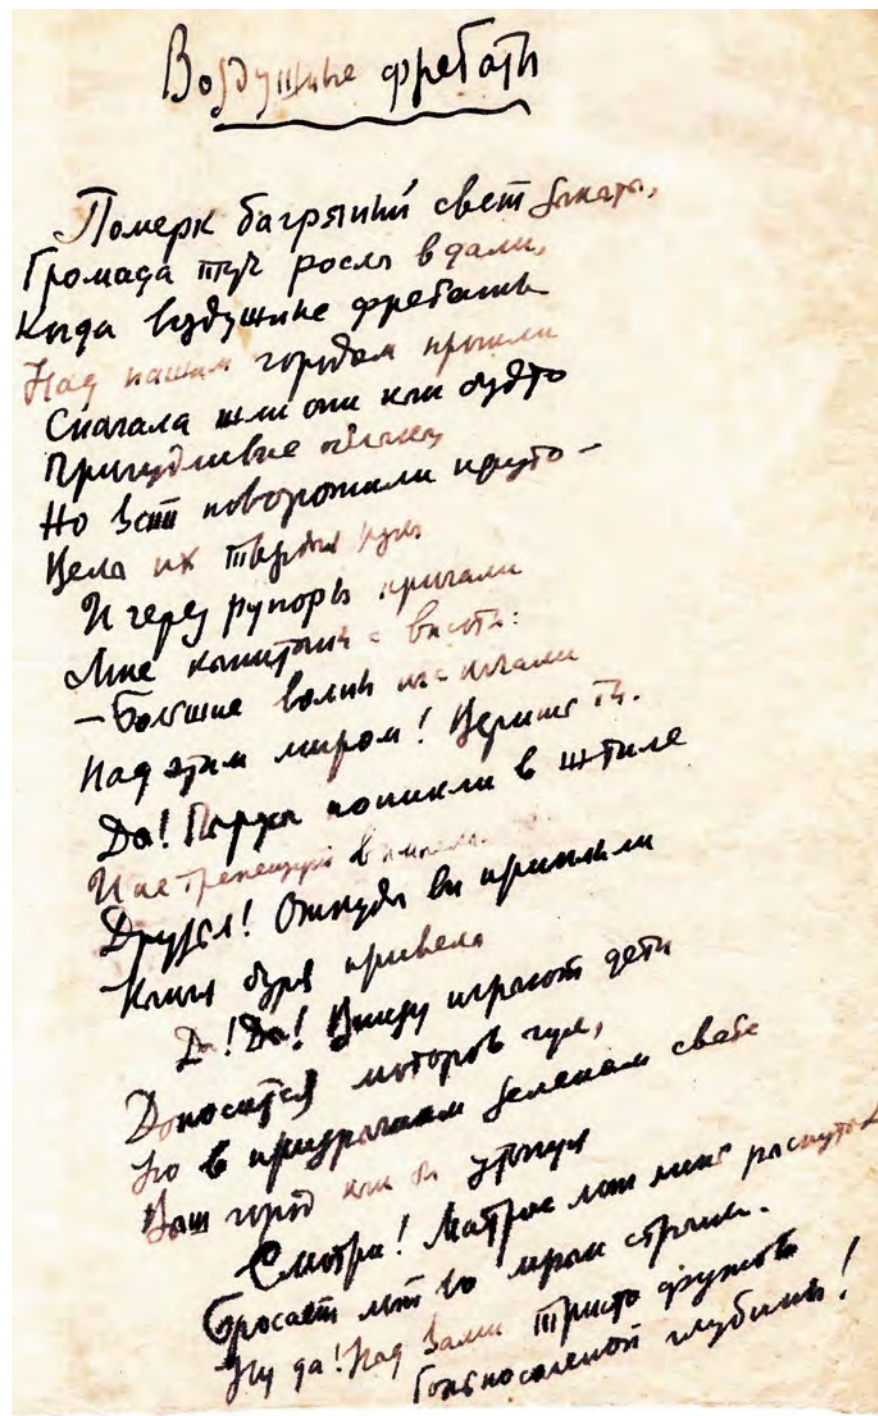 Воздушные фрегаты
Померк багряный свет заката,
Громада туч росла вдали,
Когда воздушные фрегаты
Над нашим городом прошли
Сначала шли они как будто
Причудливые облака,
Но вот поворотили круто —
Вела их твердая рука
И через рупоры кричали
Мне капитаны с высоты:
— Большие волны нас качали
Над этим миром! Веришь ты.
Да! Паруса поникли в штиле
И не трепещут вымпела.
Друзья! Откуда вы приплыли
Какая буря привела
Да! Да! Внизу играют дети
Доносится моторов гул,
Но в призрачном зеленом свете
Ваш город как бы утонул
Смотри! Матрос лот
Бросает лот во мрак страны.
Ну да! Над вами триста футов
Горько соленой глубины!